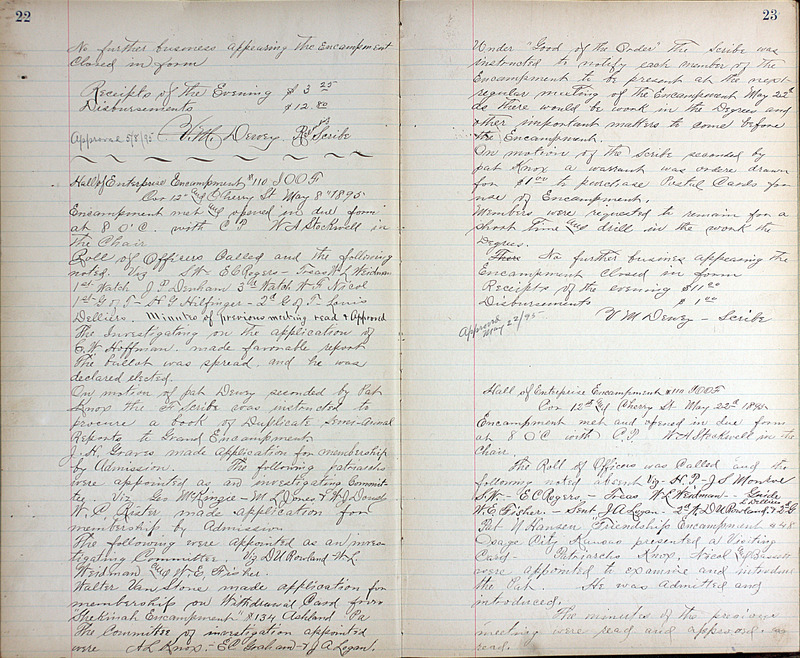 22
No further business appearing the Encampment
Closed in form
Receipts of the Evening $ 3 25
Disbursements $ 12.80
Approved 5/8/95 V M Dewey Scribe
Hall of Enterprise Encampment #110 IOOF
Cor 12th & Cherry St May 8" 1895
Encampment met and opened in due form
at 8 O'C. with C P W A Stockwell in
the Chair
Roll of Officers Called and the following
noted. Viz S W - E C Rogers - Treas W L Weidman
1st Watch J P Denham 3d Watch W F Nicol
1st G of T - H G Hilfinger - 2d G of T Louis
Delliers. Minutes of previous meeting read & Approved
The Investigating on the application of
E. W. Hoffman. made favorable report
The ballot was spread. and he was
declared elected.
On motion of pat Dewey seconded by Pat
Knox the Scribe was instructed to
procure a book of Duplicate Semi-Annual
Reports to Grand Encampment
J. H. Graves made application for membership
by Admission. The following patriarchs
were appointed as an investigating Committ
ee. Viz Geo McKenzie - M L Jones & W J Donald
W. C. Rister made application for
membership by Admission
The following were appointed as an inves-
tigating Committee. Viz D U Rowland W. L.
Weidman and W. E. Fisher.
Walter Van Stone made application for
membership on Withdrawal Card from
Shekinah Encampment #134 Ashland Pa
The Committee of investigation appointed
were A L Knox - E C Graham & J A Logan.
23
Under "Good of the Order" The Scribe was
instructed to notify each member of the
Encampment to be present at the next
regular meeting of the Encampment May 22d
as there would be work in the Degrees and
other important matters to come before
the Encampment.
On motion of the Scribe seconded by
pat Knox a warrant was ordere drawn
for $1.00 to purchase Postal Cards for
use of Encampment.
Members were requested to remain for a
short time and drill in the work the
Degrees.
No further busines appearing the
Encampment closed in form
Receipts of the evening $11.00
Disbursements $ 1.00
V M Dewey - Scribe
Approved
May 22/95
Hall of Enterprise Encampment #110 IOOF
Cor 12th & Cherry St May 22d 1895
Encampment met and opened in due form
at 8 O'C with C.P. W A Stockwell in the
Chair.
The Roll of Officers was Called and the
following noted absent Viz - H. P. J S Monroe
S.W. - E C Rogers - Treas W L Weidman - Guide
L Delliers
W. E. Fisher - Sent. J A Logan - 2d W. D U Rowland & 2d G
Pat Hansen Friendship Encampment #48
Osage City, Kansas presented a Visiting
Card - Patriarchs Knox, Nicol and
were appointed to examine and introduce
the Pat. He was Admitted and
introduced.
The minutes of the previous
meeting were read and approved as
read.